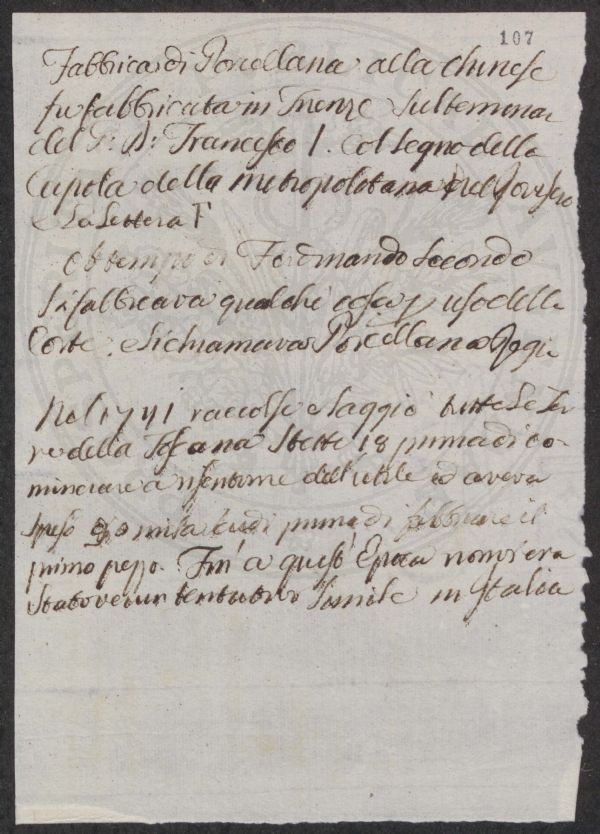 107
Fabbrica di Porcellana alla chinese
fu fabbricata in Firenze sul terminar
del G: D: Francesco I. Col segno della
Cupola della metropolitana nel rovescio
e La Lettera F
al tempo di Ferdinando Secondo
Si fabbricava qualche cosa p uso della
Corte. e Si chiamava Porcellana Regia
Nel 1741 raccolse e Saggiò tutte Le Ter
re della Toscana Stette 18 prima di co
minciare a risentirne dell'utile ed aveva
speso mila scudi prima di fabbricare il
primo pezzo. Fin' a quest' Epoca non vi era
Stato verun tentativo Simile in Italia